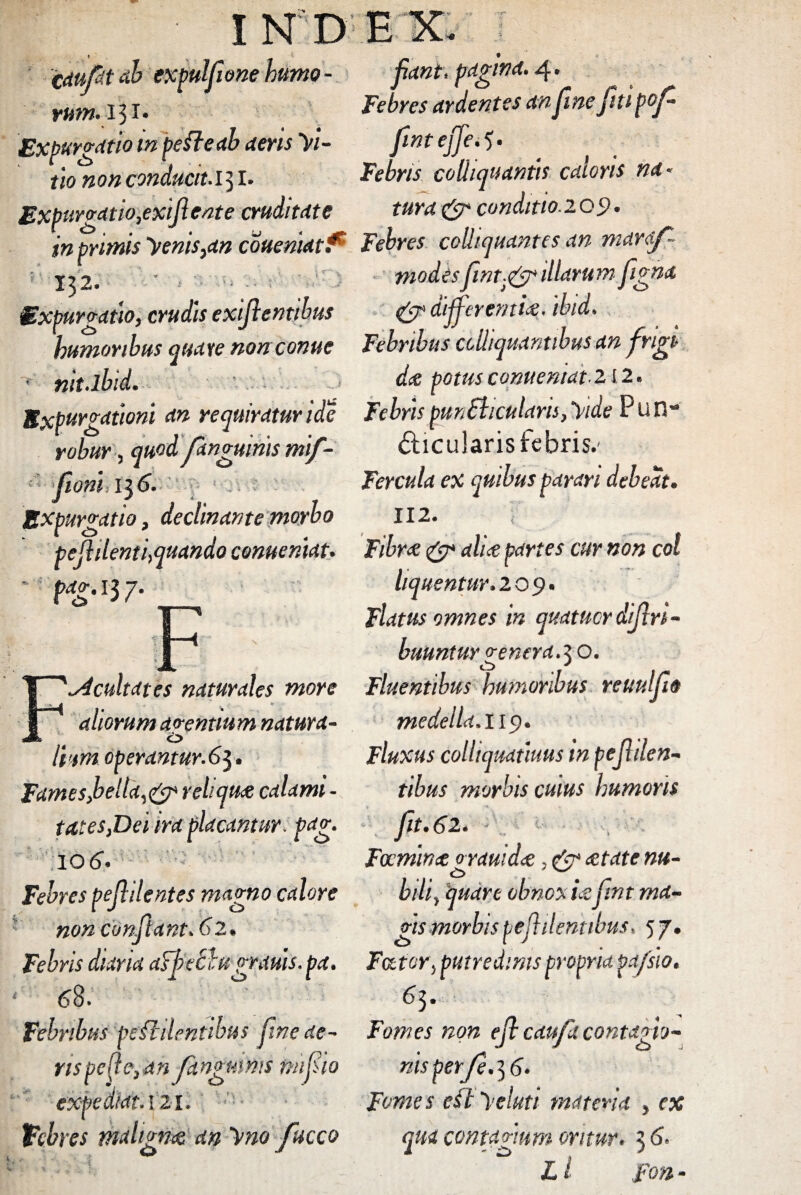 INDEX.
cauſat ab expulſione humo-
rum. 131.
Expurgatio in peſte ab aeris vi-
tio non conducit. 131.
Expurgatio, exiſtente cruditate
in primis venis, an coueniat?
132.
Expurgatio, crudis exiſtentibus
humoribus quare non conue
nit. Ibid.
Expurgationi an requiratur idē
robur, quod ſanguinis miſ-
ſioni 136.
Expurgatio, declinante morbo
peſtilenti, quando conueniat.
pag. 137.
F
FAcultates naturales more
aliorum agentium natura-
lium operantur. 63.
Fames, bella, & reliquæ calami-
tates, Dei ira placantur. pag.
106.
Febres peſtilentes magno calore
non conſtant. 62.
Febris diaria aſpectu grauis. pa.
68.
Febribus peſtilentibus ſine ae-
ris peſte, an ſanguinis miſsio
expediat. 121.
Febres malignæ an vno ſucco
fiant. pagina. 4.
Febres ardentes an ſine ſiti poſ-
ſint eſſe. 5.
Febris colliquantis caloris na-
tura & conditio. 209.
Febres colliquantes an maraſ-
modes ſint, & illarum ſigna
& differentiæ. ibid.
Febribus colliquantibus an frigi
dæ potus conueniat. 212.
Febris puncticularis, vide Pun-
cticularis febris.
Fercula ex quibus parari debeāt.
112.
Fibræ & aliæ partes cur non col
liquentur. 209.
Flatus omnes in quatuor diſtri-
buuntur genera. 30.
Fluentibus humoribus reuulſio
medella. 119.
Fluxus colliquatiuus in peſtilen-
tibus morbis cuius humoris
ſit. 62.
Fœminæ grauidæ, & ætate nu-
bili, quare obnoxiæ ſint ma-
gis morbis peſtilentibus. 57.
Fœtor, putredinis propria paſsio.
63.
Fomes non eſt cauſa contagio-
nis per ſe. 36.
Fomes eſt veluti materia, ex
qua contagium oritur. 36.
Ll Fon-